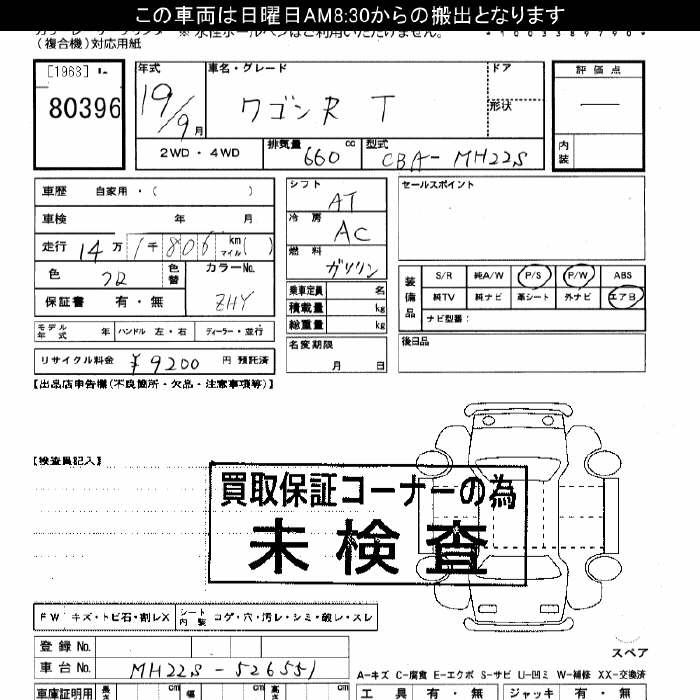 この車両は日曜日AM8:30からの搬出となります
(複合機)対応用紙
[1963]
80396
年式 19/9月
車名・グレード ワゴンR T
ドア
形状
評価点
内装
2WD・4WD
排気量 660 cc
型式 CBA-MH22S
車歴 自家用・( )
車検 年 月
走行 14万 1千806 km マイル( )
色 クロ 色替
カラーNo. ZHY
保証書 有・無
モデル年式 年 ハンドル 左・右 ディーラー・並行
リサイクル料金 ¥9200 円 預託済
シフト AT
冷房 AC
燃料 ガソリン
乗車定員 名
積載量 kg
総重量 kg
名変期限 月 日
セールスポイント
装備品
S/R 純A/W P/S P/W ABS
純TV 純ナビ 革シート 外ナビ エアB
ナビ型番:
後日品
【出品店申告欄(不良箇所・欠品・注意事項等)】
【検査員記入】
買取保証コーナーの為
未検査
FW キズ・トビ石・割レX シート内装 コゲ・穴・汚レ・シミ・破レ・スレ
登録No.
車台No. MH22S-526551
スペア
A-キズ C-腐食 E-エクボ S-サビ U-凹ミ W-補修 XX-交換済
車庫証明用 長さ cm 幅 cm 高さ cm
工具 有・無 ジャッキ 有・無